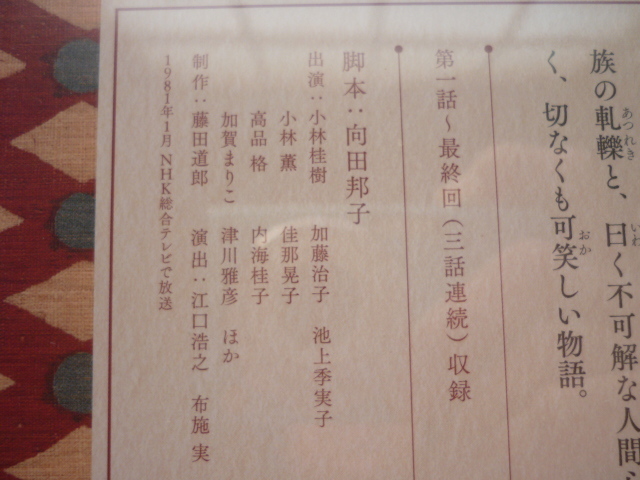 族の軋轢と、曰く不可解な人間
く、切なくも可笑しい物語。
第一話～最終回（三話連続）収録
脚本：向田邦子
出演：小林桂樹　加藤治子　池上季実子
小林 薫　佳那晃子
高品 格　内海桂子
加賀まりこ　津川雅彦　ほか
制作：藤田道郎　演出：江口浩之　布施 実
1981年1月 NHK総合テレビで放送